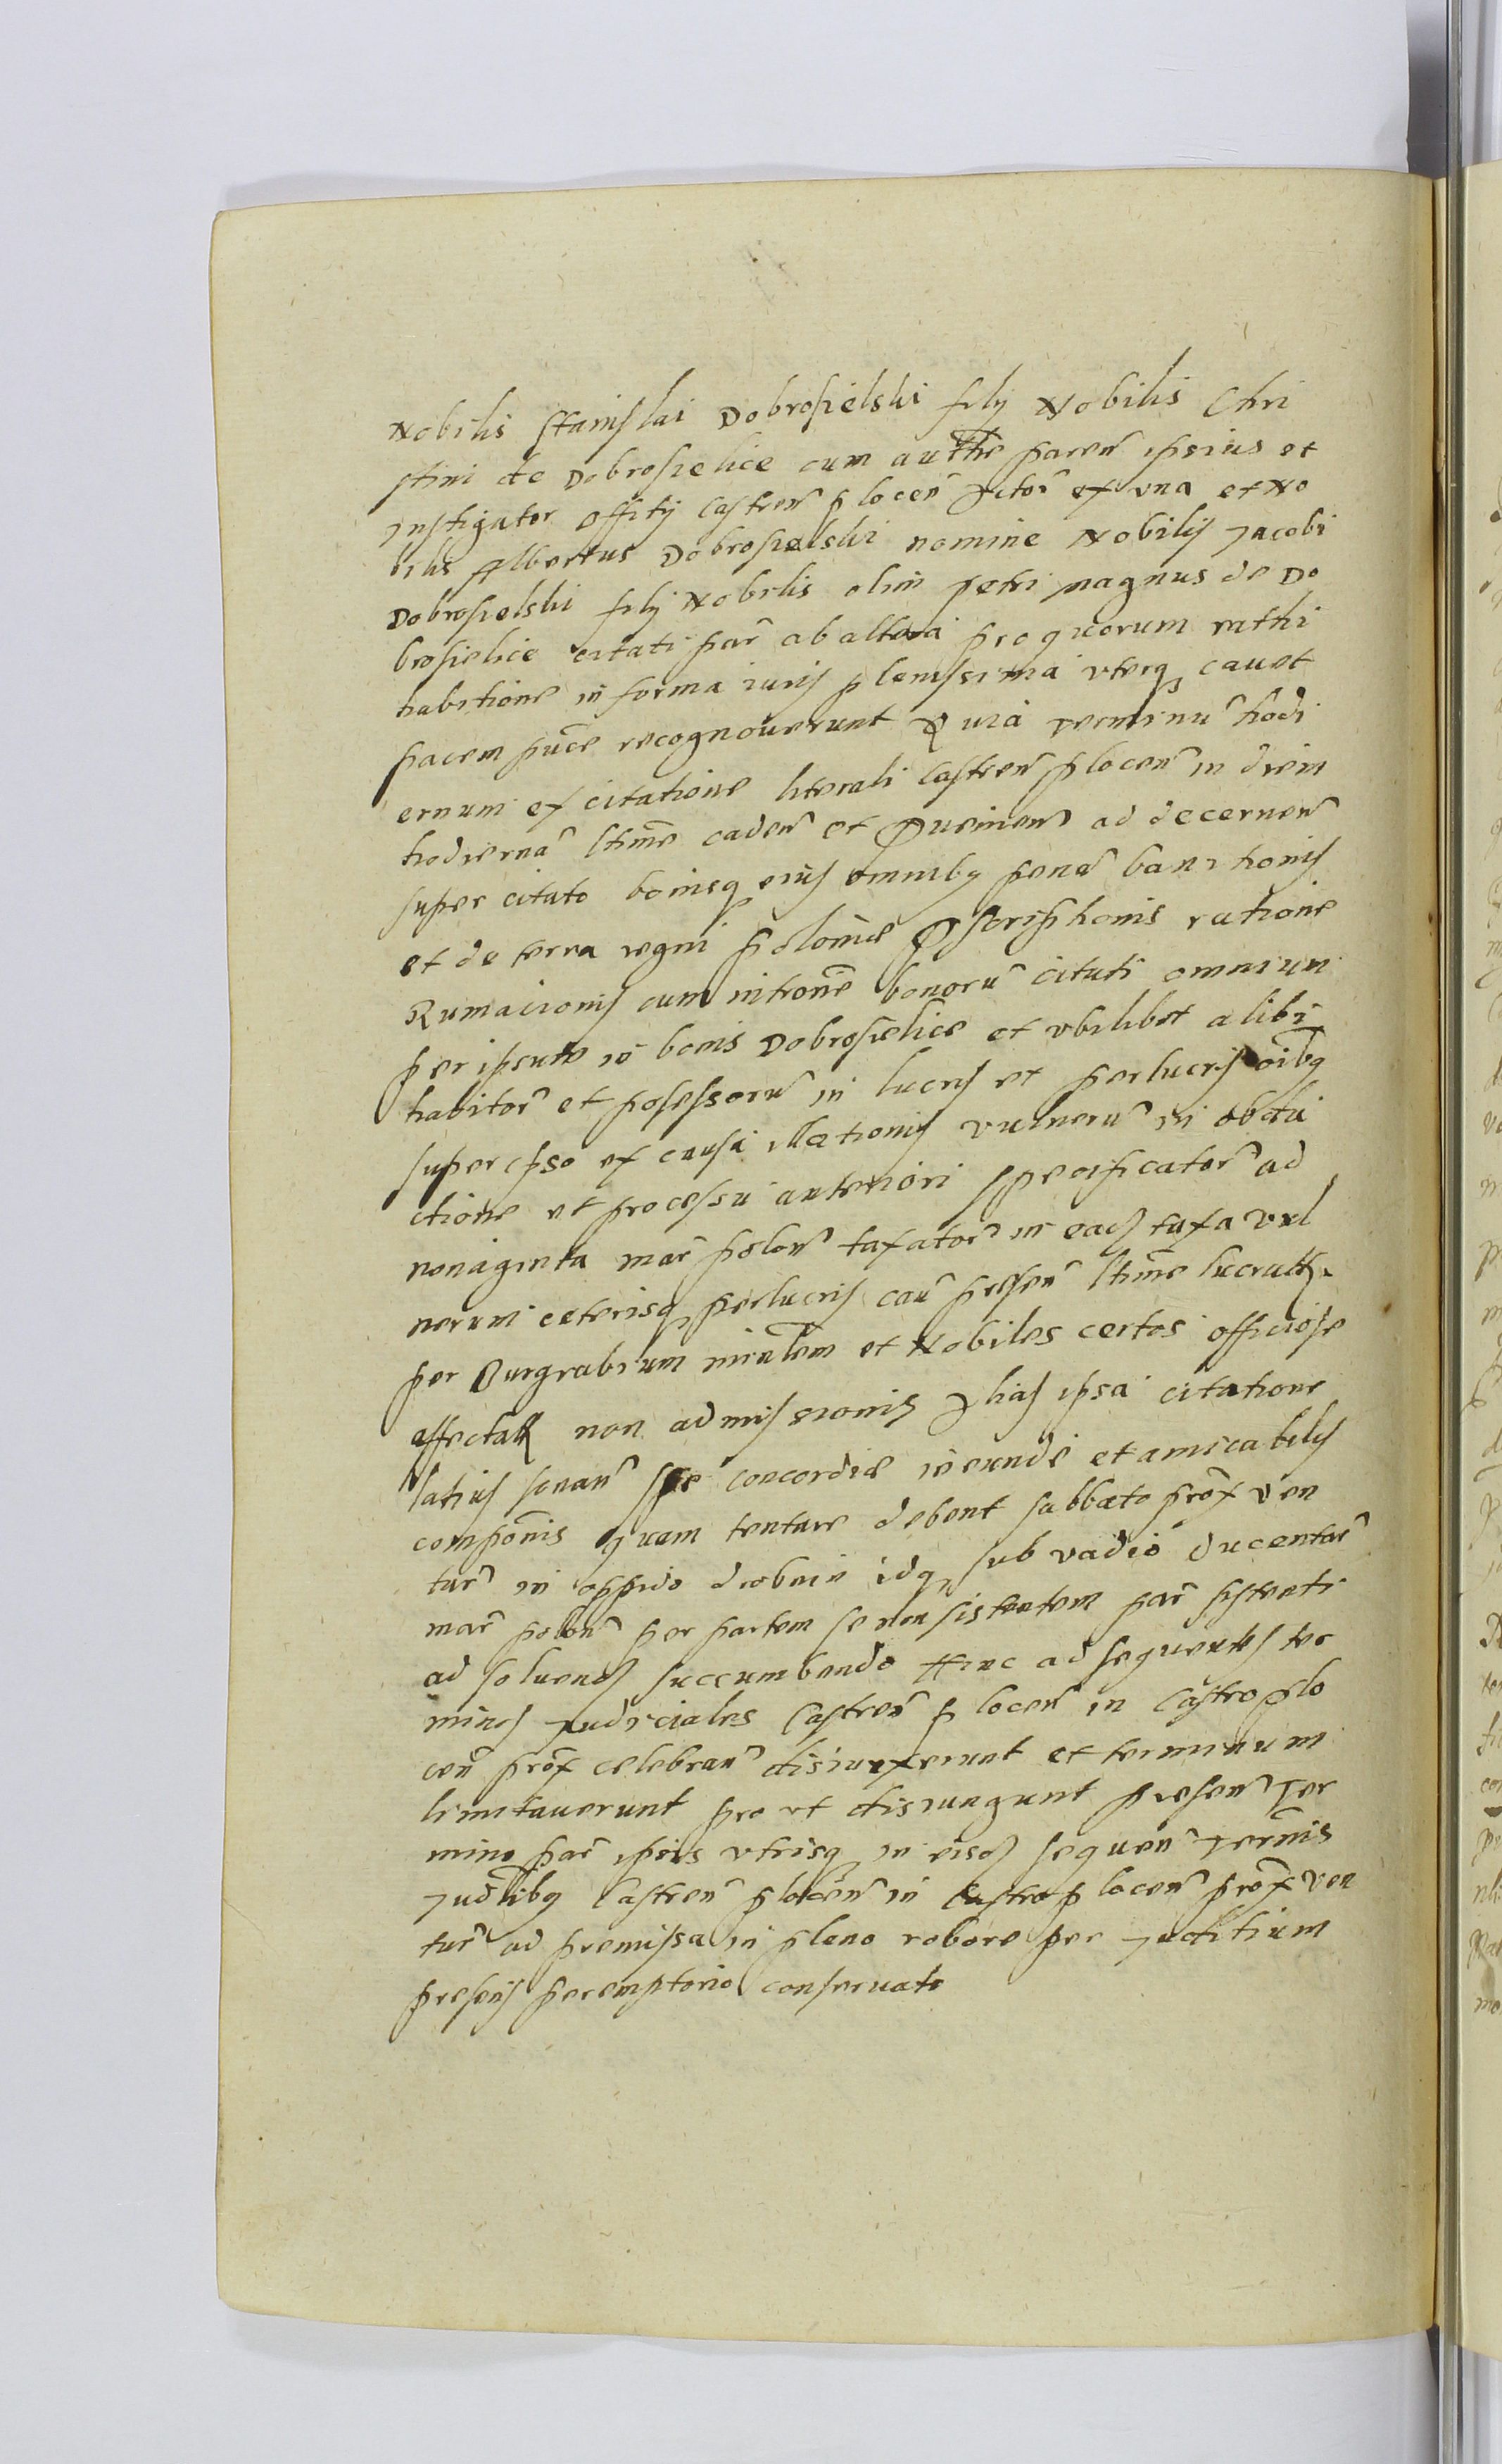 Nobilis Stanislai Dobrosielski filÿ Nobilis Chri
stini de Dobrosielice cum autthe paren̄ ipsius et
Instigator Offitÿ Castren̄ plocen̄ Actor̄ ex vna et No
bilis Albertus Dobrosielski nomine Nobilis Jacobi
Dobrosielski filÿ Nobilis olim petri magnus de Do
brosielice citati par̄ ab altera pro quorum rathi
habitione in forma iuris plenissima vterq cauet
pacem pn̄ce recognouerunt Quia terminū hodi
ernum ex citatione literali Castren̄ plocen̄ in diem
hodiernā ltime caden̄ et Prueinen̄ ad decernen̄
super citato bonisq eius omnibq penā banitionis
et de terra regni poloniæ Pscriptionis ratione
Rumacionis cum intromē bonorū citati omnium
per ipsum in bonis Dobrosielice et vbilibet alibi
habitor̄ et possessorū in lucris et perlucris oibq
super ipso ex causa illationis vulnerū in obdu
ctione et processu anteriori specificator̄ ad
nonaginta mar̄ polon̄ taxator̄ in eadē taxa vul
nerum ceterisq perlucris cau presen̄ ltime lucratt
per Burgrabium minlem et Nobiles certos officiose
affectatt non admissionis Alias ipsa citatione
latius sonan̄ spe concordiæ ineundæ et amicabilis
componis quam tentare debent sabbato prox ven
tur̄ in oppido drobnin idq sub vadio ducentar̄
mar̄ polon̄ per partem se non sistentem par̄ sistenti
ad soluend succumbendo Hinc ad sequentes ter
minos Judiciales Castren̄ plocen̄ in Castro plo
cen̄ prox celebran̄ disiunxerunt et terminum
limitauerunt pro vt disiungunt presen̄ Ter
mino par̄ ipsis vtrisq in eisd sequen̄ Termis
Judlibq Castren̄ plocen̄ in Castro plocen̄ prox ven
tur̄ ad premissa in pleno robore per Juditium
presens peremptorio conseruato